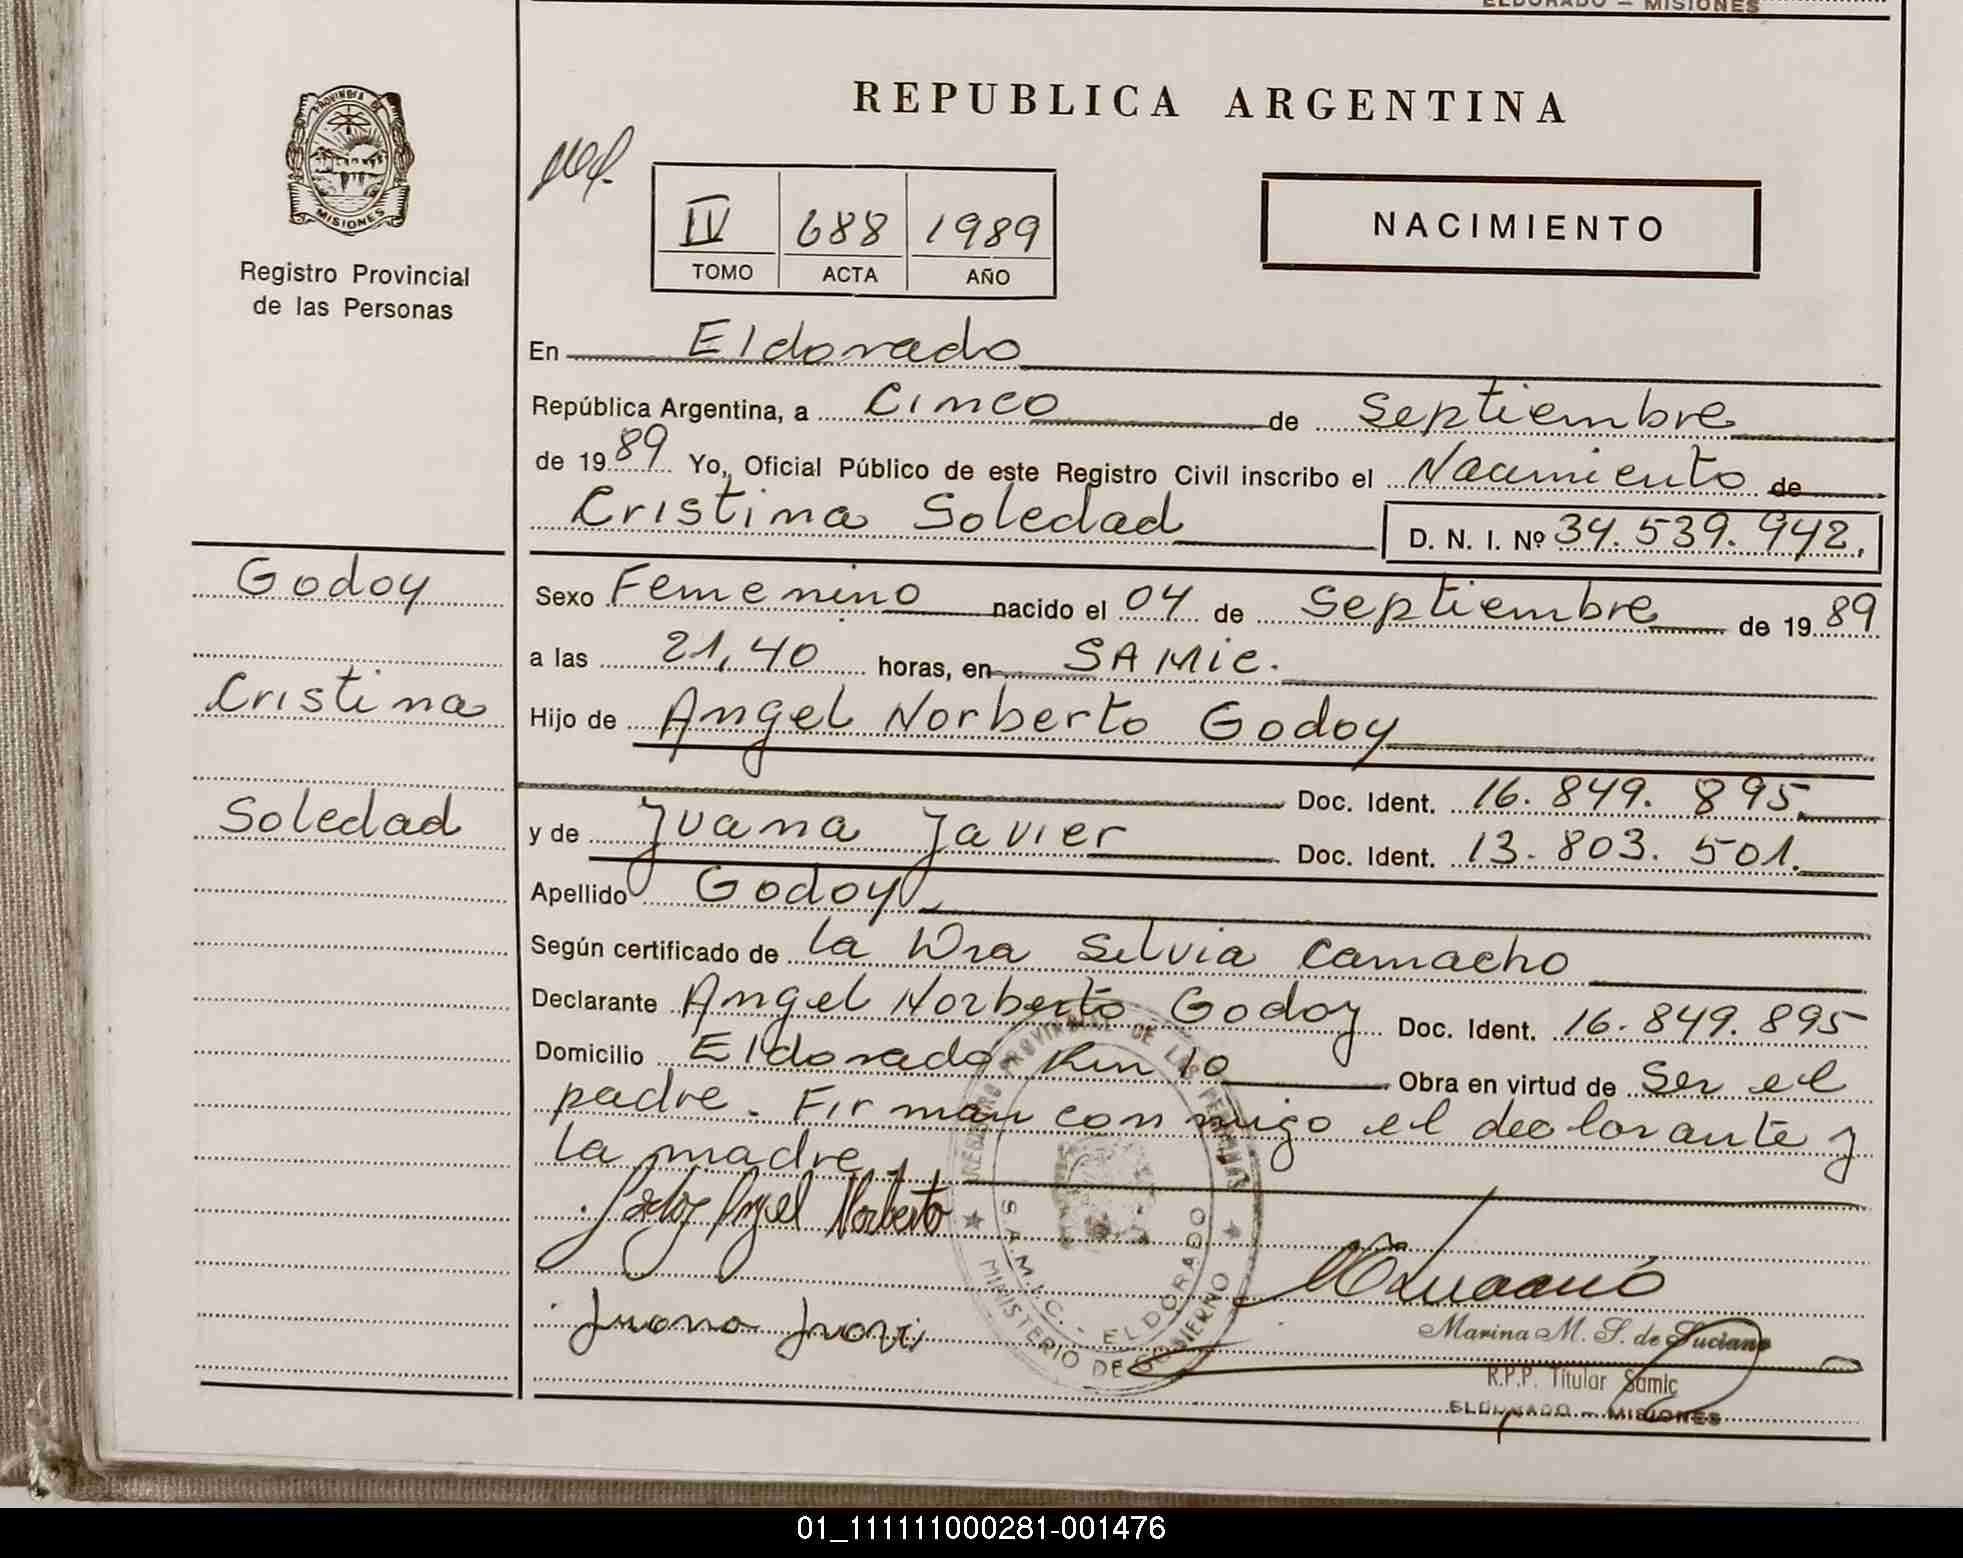 ELDORADO — MISIONES
REPUBLICA ARGENTINA
PROVINCIA DE
MISIONES
Registro Provincial
de las Personas
IV 688 1989
TOMO ACTA AÑO
NACIMIENTO
En Eldorado
República Argentina, a Cinco de Septiembre
de 1989 Yo, Oficial Público de este Registro Civil inscribo el Nacimiento de
Cristina Soledad D. N. I. Nº 34.539.942.
Godoy
Cristina
Soledad
Sexo Femenino nacido el 04 de Septiembre de 1989
a las 21,40 horas, en SAMic.
Hijo de Angel Norberto Godoy
Doc. Ident. 16.849.895.
y de Juana Javier Doc. Ident. 13.803.501.
Apellido Godoy
Según certificado de la Dra Silvia Camacho
Declarante Angel Norberto Godoy Doc. Ident. 16.849.895
Domicilio Eldorado Km 10 Obra en virtud de Ser el
padre. Firman conmigo el declarante y
la madre.
Godoy Angel Norberto
REGISTRO PROVINCIAL DE LAS PERSONAS
S.A.M.I.C. - ELDORADO
MINISTERIO DE GOBIERNO
Juana
Marina M. S. de Luciano
R.P.P. Titular Samic
ELDORADO — MISIONES
01_111111000281-001476